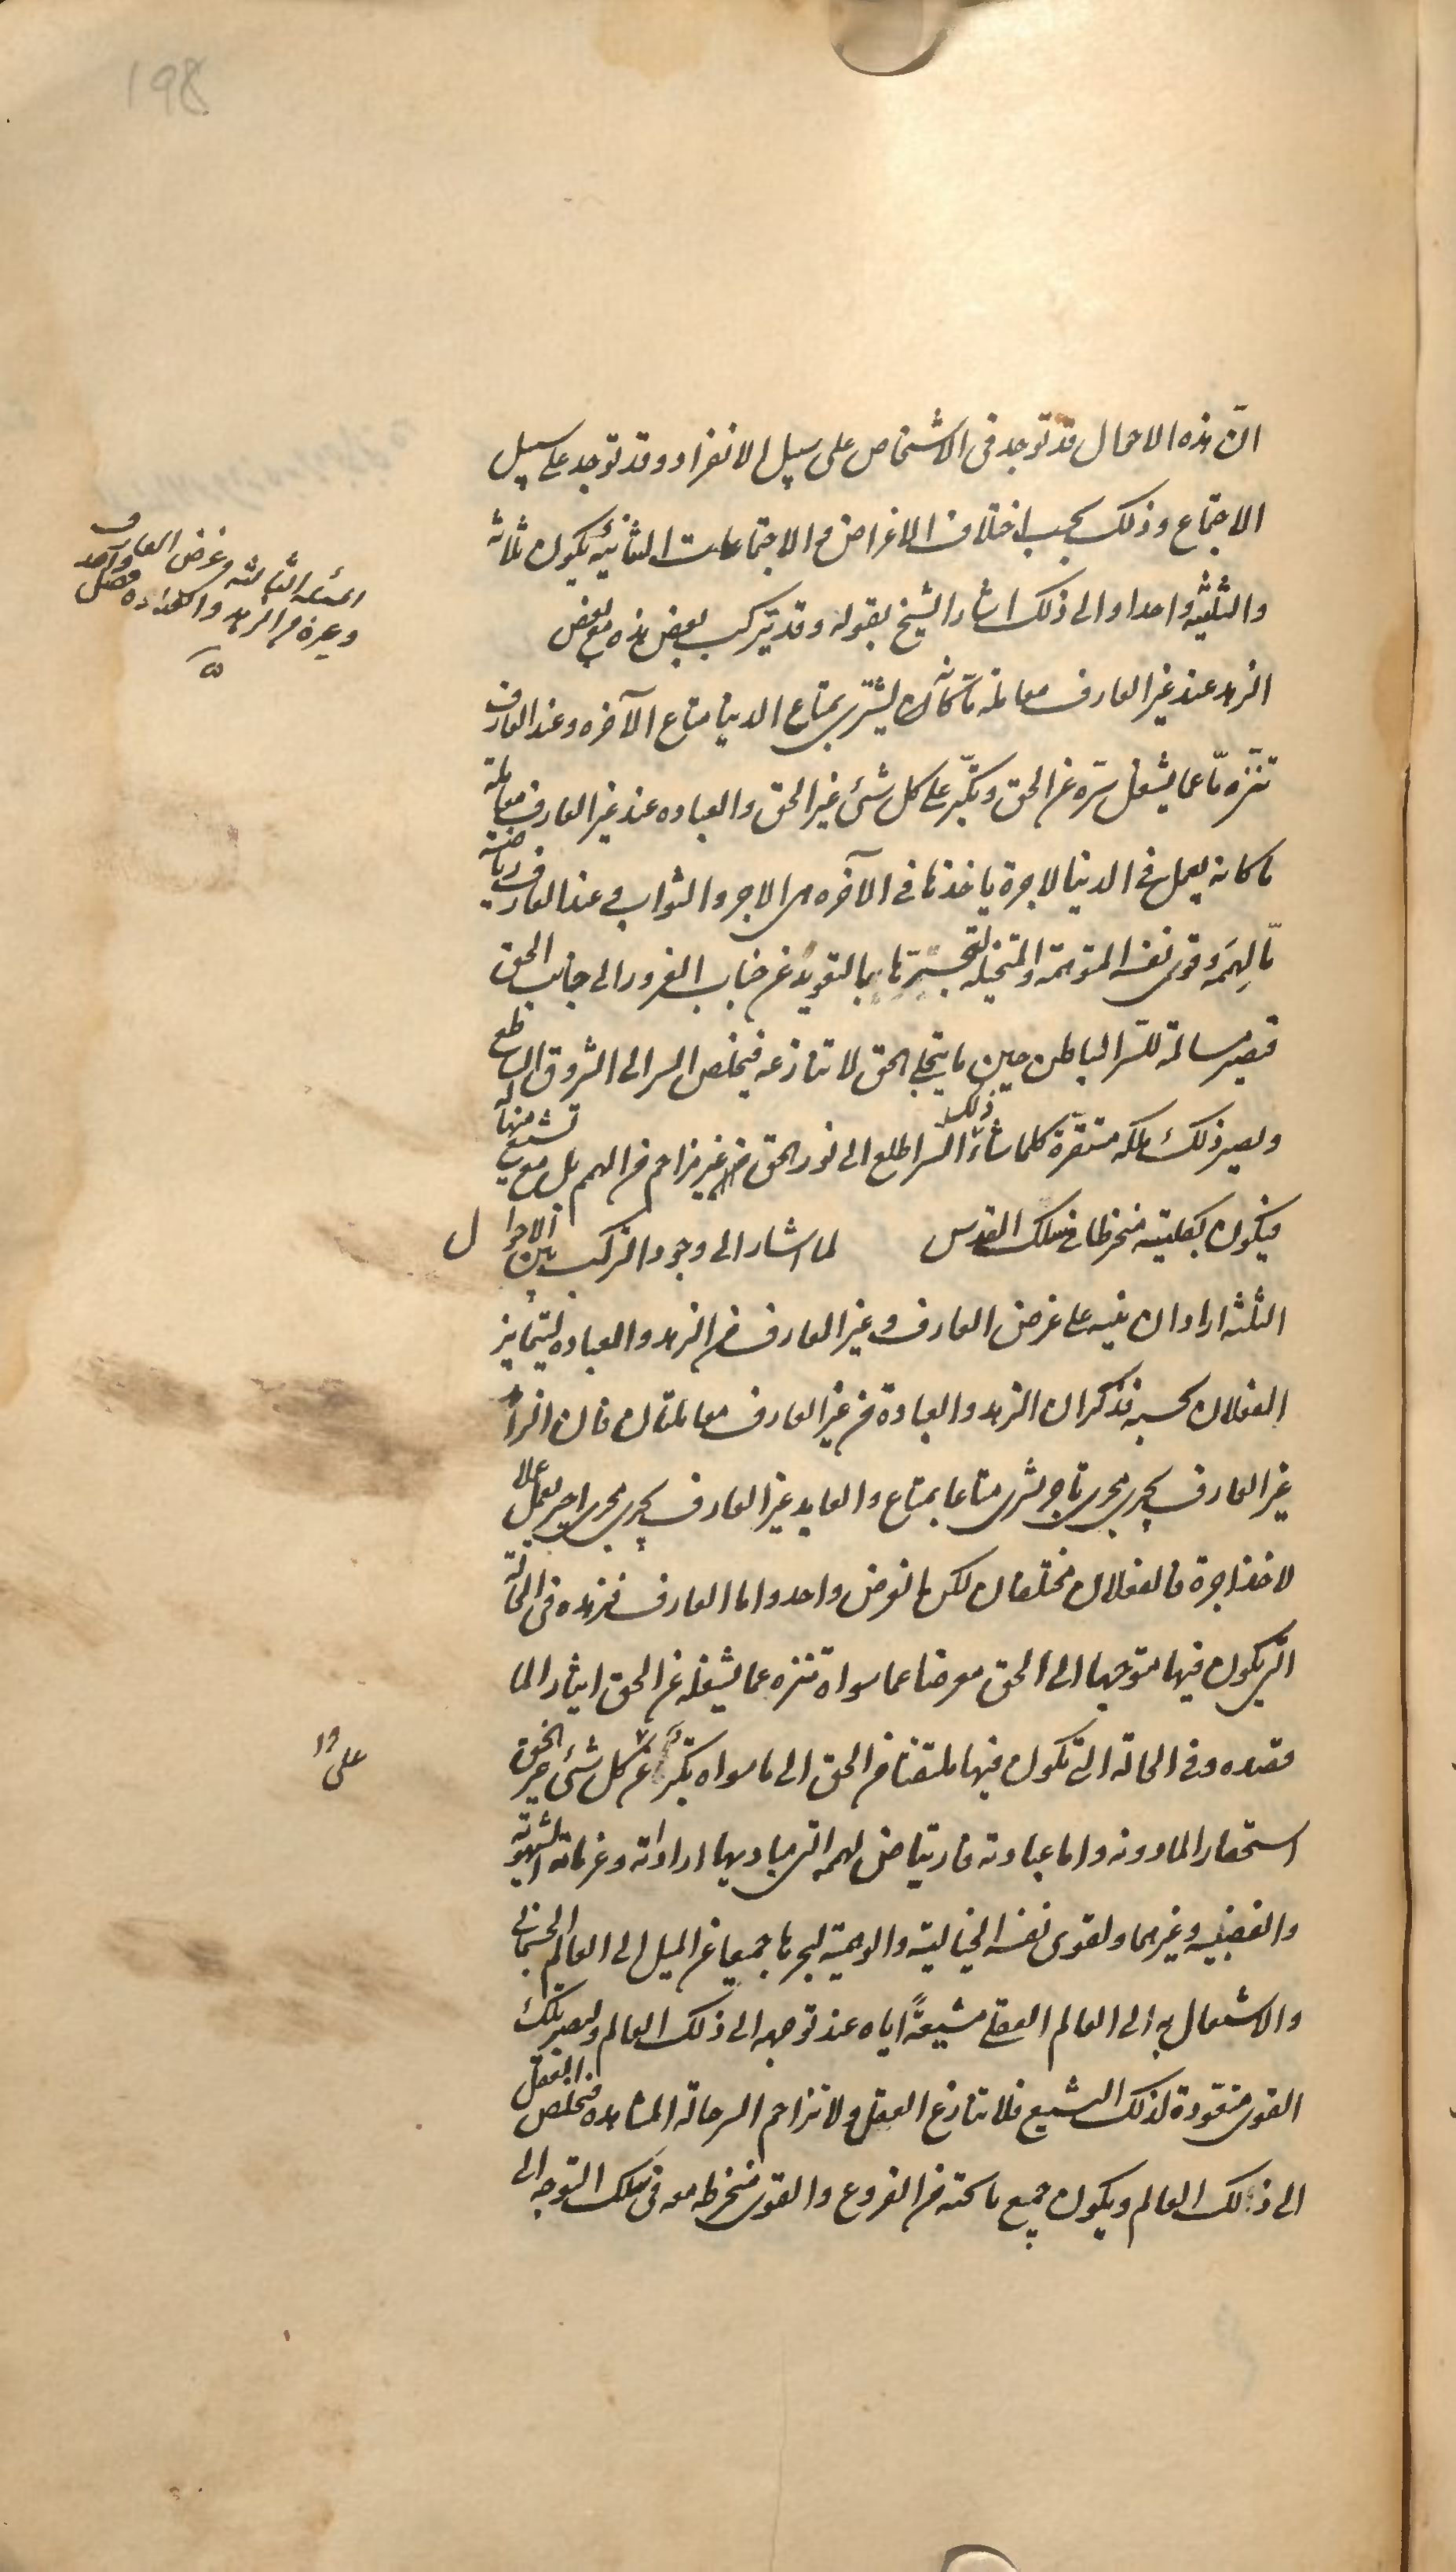 198
انّ هذه الاحوال قد توجد فى الاشخاص على سبيل الانفراد وقد توجد على سبيل
الاجتماع وذلك بحسب اختلاف الاغراض والاجتماعات الثنائية يكون ثلاثه
والثلثيه واحدا والى ذلك اشار الشيخ بقوله وقد يتركب بعض هذه مع بعض
الزهد عند غير العارف معاملة ما كانه يشترى بمتاع الدنيا متاع الآخره وعند العارف
تنزّه مّا عما يشغل سرّه عن الحق وتكبّر على كل شئ غير الحق والعباده عند غير العارف معاملة
ما كانه يعمل فى الدنيا لاجرة ياخذها فى الآخره هى الاجر والثواب وعند العارف رياضة
مّا لِهِمَمه وقوى نفسه المتوهمة والمتخيله لتجرّها بالتعويد عن جناب الغرور الى جانب الحق
فتصير مسالمة للسّر الباطن حين ما يتجلى الحق لا تنازعه فيخلص السر الى الشروق الساطع
ويصير ذلك ملكه مستقرّة كلما شاء السر اطلع الى نور الحق من غير مزاحم من الهمم بل مع تشييع منها له
فيكون بكليته منخرطا فى سلك القدس لما اشار الى وجود التركب بين الاحوال
الثلثه اراد ان ينبه على غرض العارف وغير العارف من الزهد والعباده ليتمايز
الفعلان بحسبه فذكر ان الزهد والعبادة من غير العارف معاملتان فان الزاهد
غير العارف يجرى مجرى تاجر يشرى متاعا بمتاع والعابد غير العارف يجرى مجرى اجير يعمل عملا
لاخذ اجرة فالفعلان مختلفان لكن الغرض واحد واما العارف فزهده فى الحالة
التى يكون فيها متوجها الى الحق معرضا عما سواه تنزه عما يشغله عن الحق ايثارا لما
قصده وفى الحالة التى تكون فيها ملتفتا من الحق الى ما سواه تكبّر عن كل شئ غير الحق
على
استحقارا لما دونه واما عبادته فارتياض لهممه التى مباديها اراداته وعزماته الشهوية
والغضبيه وغيرهما ولقوى نفسه الخيالية والوهمية ليجرها جميعا عن الميل الى العالم الجسمانى
والاشتغال به الى العالم العقلى مشيعةً اياه عند توجهه الى ذلك العالم ولتصير تلك
القوى متعودة لذلك التشييع فلا تنازع العقل ولا تزاحم السر حالة المشاهده فيخلص العقل
الى ذلك العالم ويكون جميع ما تحته من الفروع والقوى منخرطه معه فى سلك التوجه الى
المسئله الثالثه وغرض العارف
وغيره من الزهد والعباده